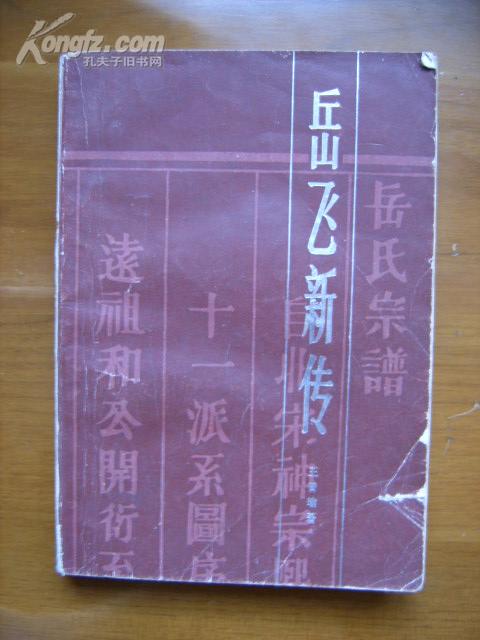 Kongfz.com
孔夫子旧书网
岳飞新传
王曾瑜著
岳氏宗譜
自北宋神宗熙
十一派系圖序
遠祖和公開衍至